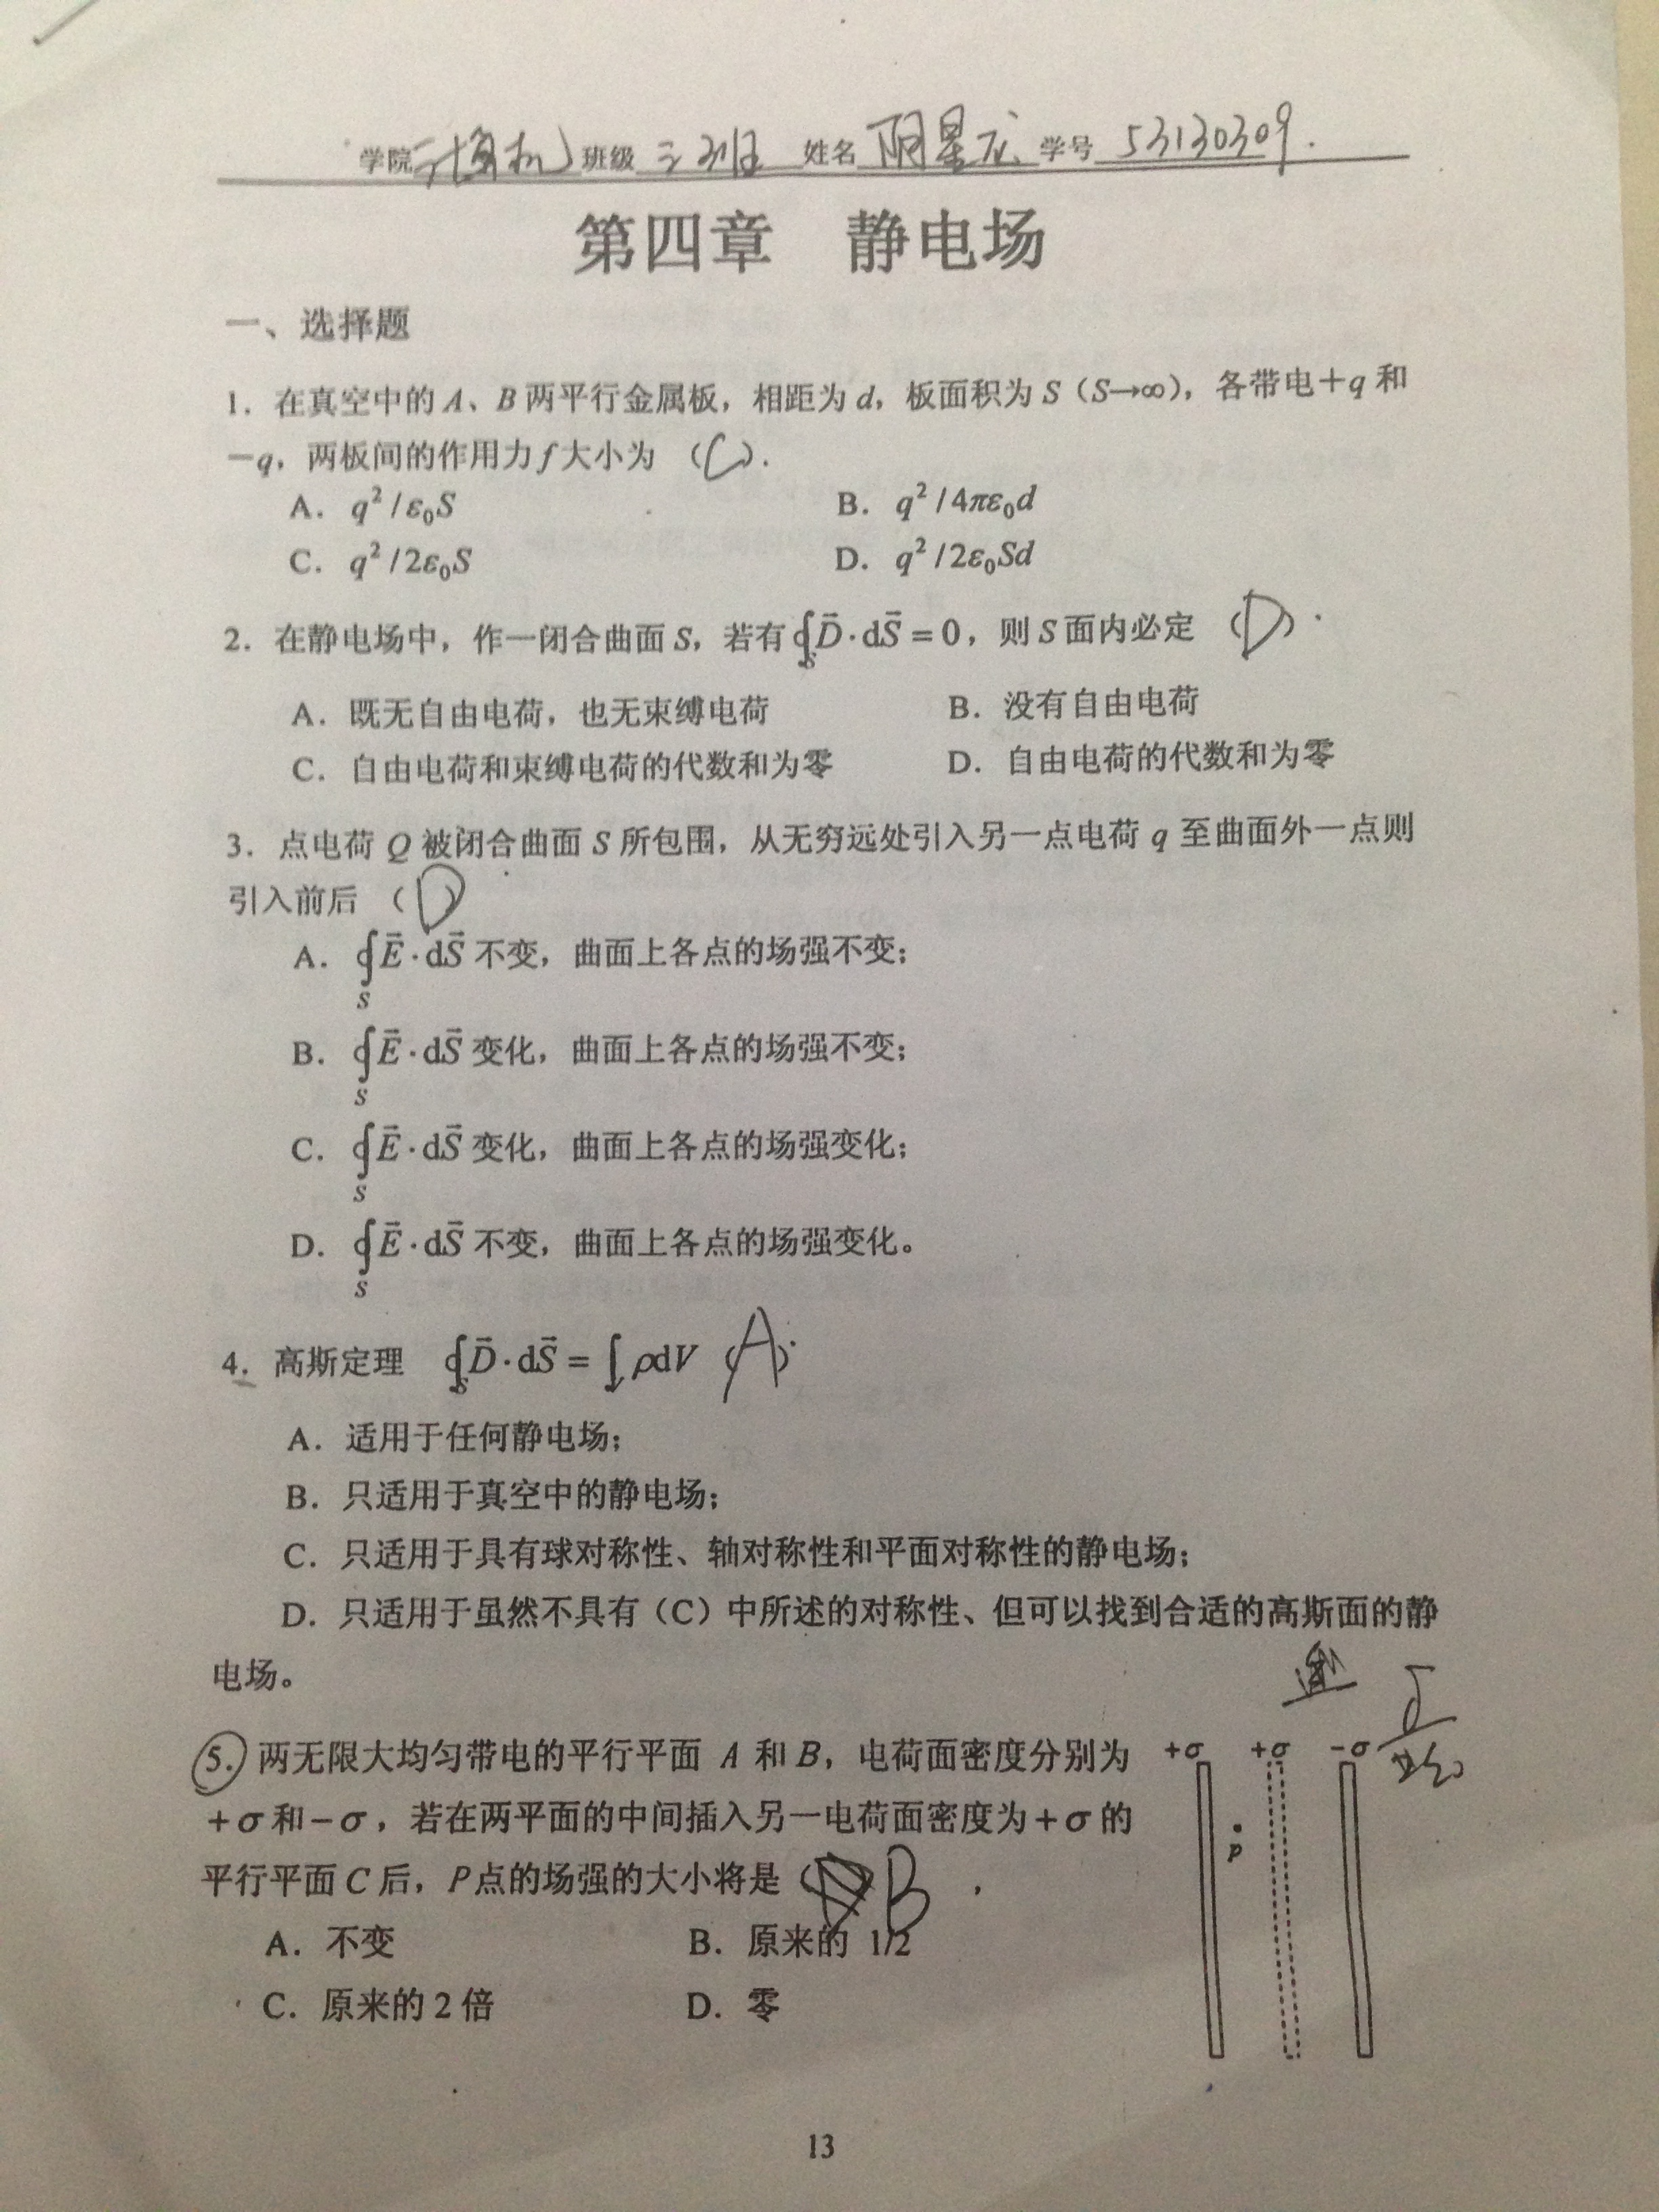 学院 计算机 班级 三班 姓名 阴星龙 学号 53130309.
第四章 静电场
一、选择题
1. 在真空中的 A、B 两平行金属板，相距为 d，板面积为 S（S→∞），各带电＋q 和
－q，两板间的作用力 f 大小为 （C）.
A. q²/ε₀S B. q²/4πε₀d
C. q²/2ε₀S D. q²/2ε₀Sd
2. 在静电场中，作一闭合曲面 S，若有∮_S D⃗·dS⃗ = 0，则 S 面内必定 （D）.
A. 既无自由电荷，也无束缚电荷 B. 没有自由电荷
C. 自由电荷和束缚电荷的代数和为零 D. 自由电荷的代数和为零
3. 点电荷 Q 被闭合曲面 S 所包围，从无穷远处引入另一点电荷 q 至曲面外一点则
引入前后 （D）
A. ∮_S E⃗·dS⃗ 不变，曲面上各点的场强不变；
B. ∮_S E⃗·dS⃗ 变化，曲面上各点的场强不变；
C. ∮_S E⃗·dS⃗ 变化，曲面上各点的场强变化；
D. ∮_S E⃗·dS⃗ 不变，曲面上各点的场强变化。
4. 高斯定理 ∮_S D⃗·dS⃗ = ∫_V ρdV （A）.
A. 适用于任何静电场；
B. 只适用于真空中的静电场；
C. 只适用于具有球对称性、轴对称性和平面对称性的静电场；
D. 只适用于虽然不具有（C）中所述的对称性、但可以找到合适的高斯面的静
电场。
5. 两无限大均匀带电的平行平面 A 和 B，电荷面密度分别为
＋σ和－σ，若在两平面的中间插入另一电荷面密度为＋σ的
平行平面 C 后，P 点的场强的大小将是 （ B
A. 不变 B. 原来的 1/2
C. 原来的 2 倍 D. 零
+σ +σ -σ
P
13